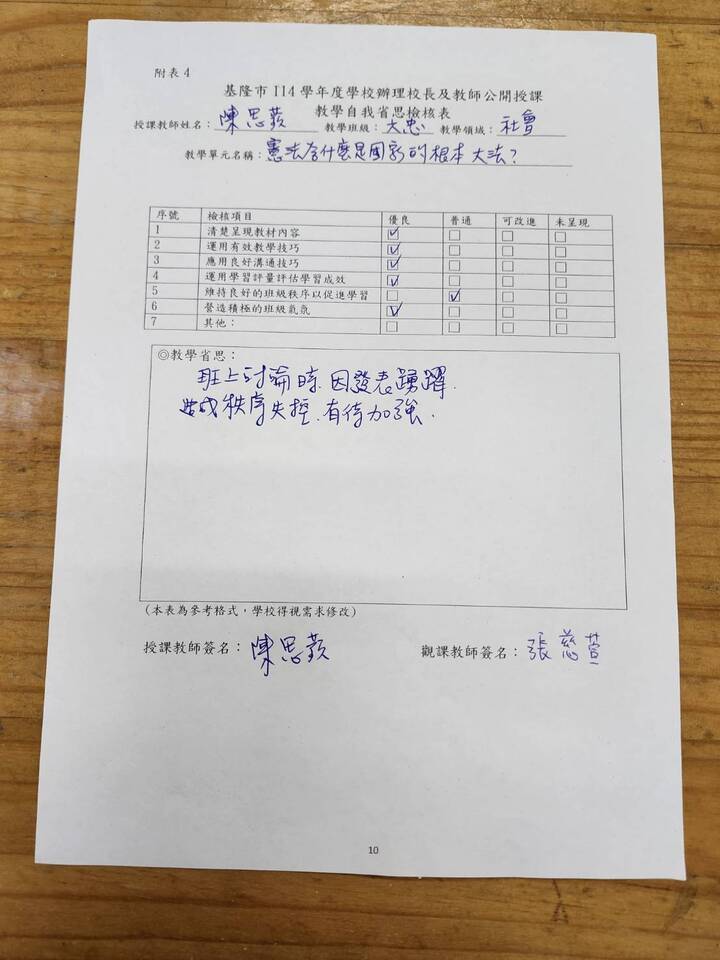 附表 4
基隆市 114 學年度學校辦理校長及教師公開授課
教學自我省思檢核表
授課教師姓名：陳思蓛 教學班級：大忠 教學領域：社會
教學單元名稱：憲法為什麼是國家的根本大法？
序號 檢核項目 優良 普通 可改進 未呈現
1 清楚呈現教材內容 ☑ □ □ □
2 運用有效教學技巧 ☑ □ □ □
3 應用良好溝通技巧 ☑ □ □ □
4 運用學習評量評估學習成效 ☑ □ □ □
5 維持良好的班級秩序以促進學習 □ ☑ □ □
6 營造積極的班級氣氛 ☑ □ □ □
7 其他： □ □ □ □
◎教學省思：
班上討論時,因發表踴躍,
造成秩序失控,有待加強.
(本表為參考格式，學校得視需求修改)
授課教師簽名：陳思蓛 觀課教師簽名：張慈萱
10